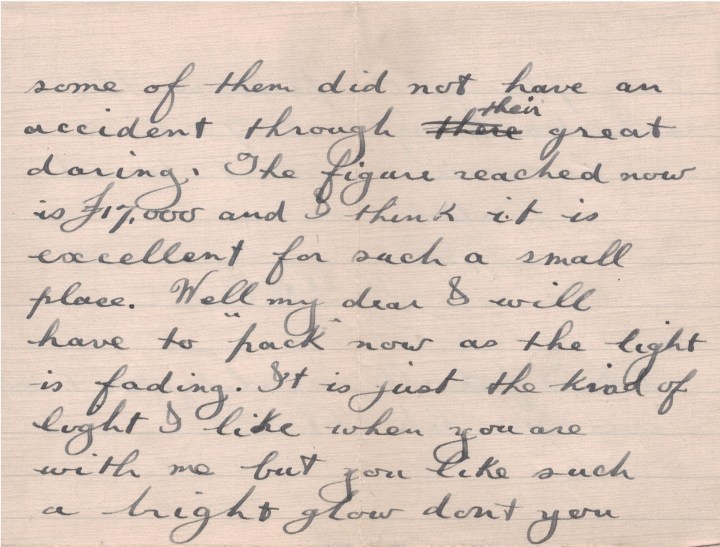 some of them did not have an
accident through ~~there~~ their great
daring. The figure reached now
is £17,000 and I think it is
excellent for such a small
place. Well my dear I will
have to "pack" now as the light
is fading. It is just the kind of
light I like when you are
with me but you like such
a bright glow dont you